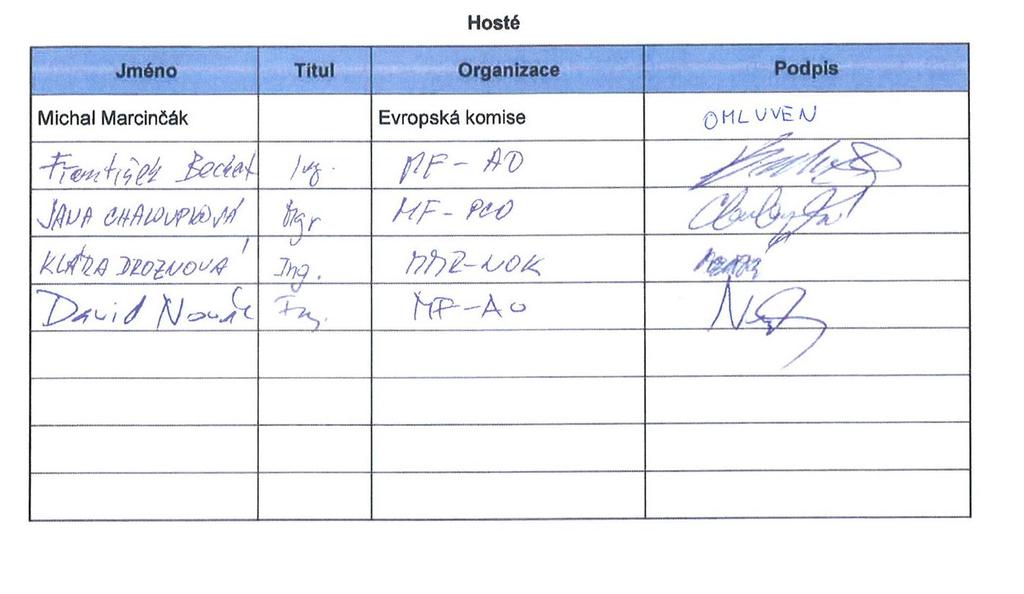 Hosté
Jméno Titul Organizace Podpis
Michal Marcinčák Evropská komise OMLUVEN
František Ing. MF - AO
JANA CHALOUPKOVÁ Mgr MF - PCO
KLÁRA DROZNOVÁ Ing. MMR-NOK
David Novák Ing. MF-AO